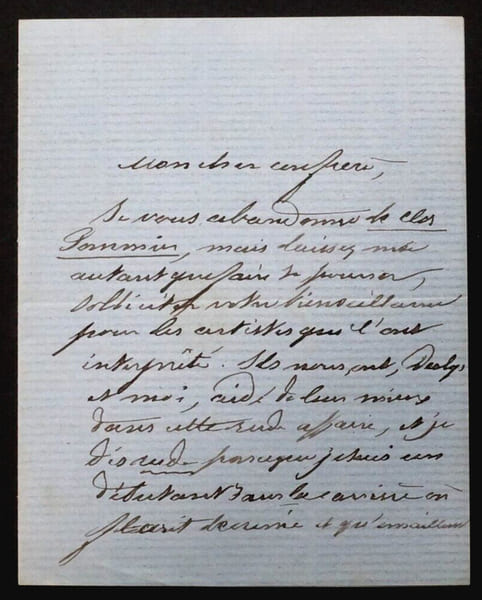 Mon cher confrère,
Je vous abandonne le Clos
Pommier, mais laissez moi
autant que faire se pourra,
solliciter votre bienveillance
pour les artistes qui l'ont
interprêté. Ils nous ont, Deslys
et moi, aidé de leur mieux
dans cette rude affaire, et je
dis rude parceque je suis un
débutant dans la carrière où
fleurit et qu'ailleurs